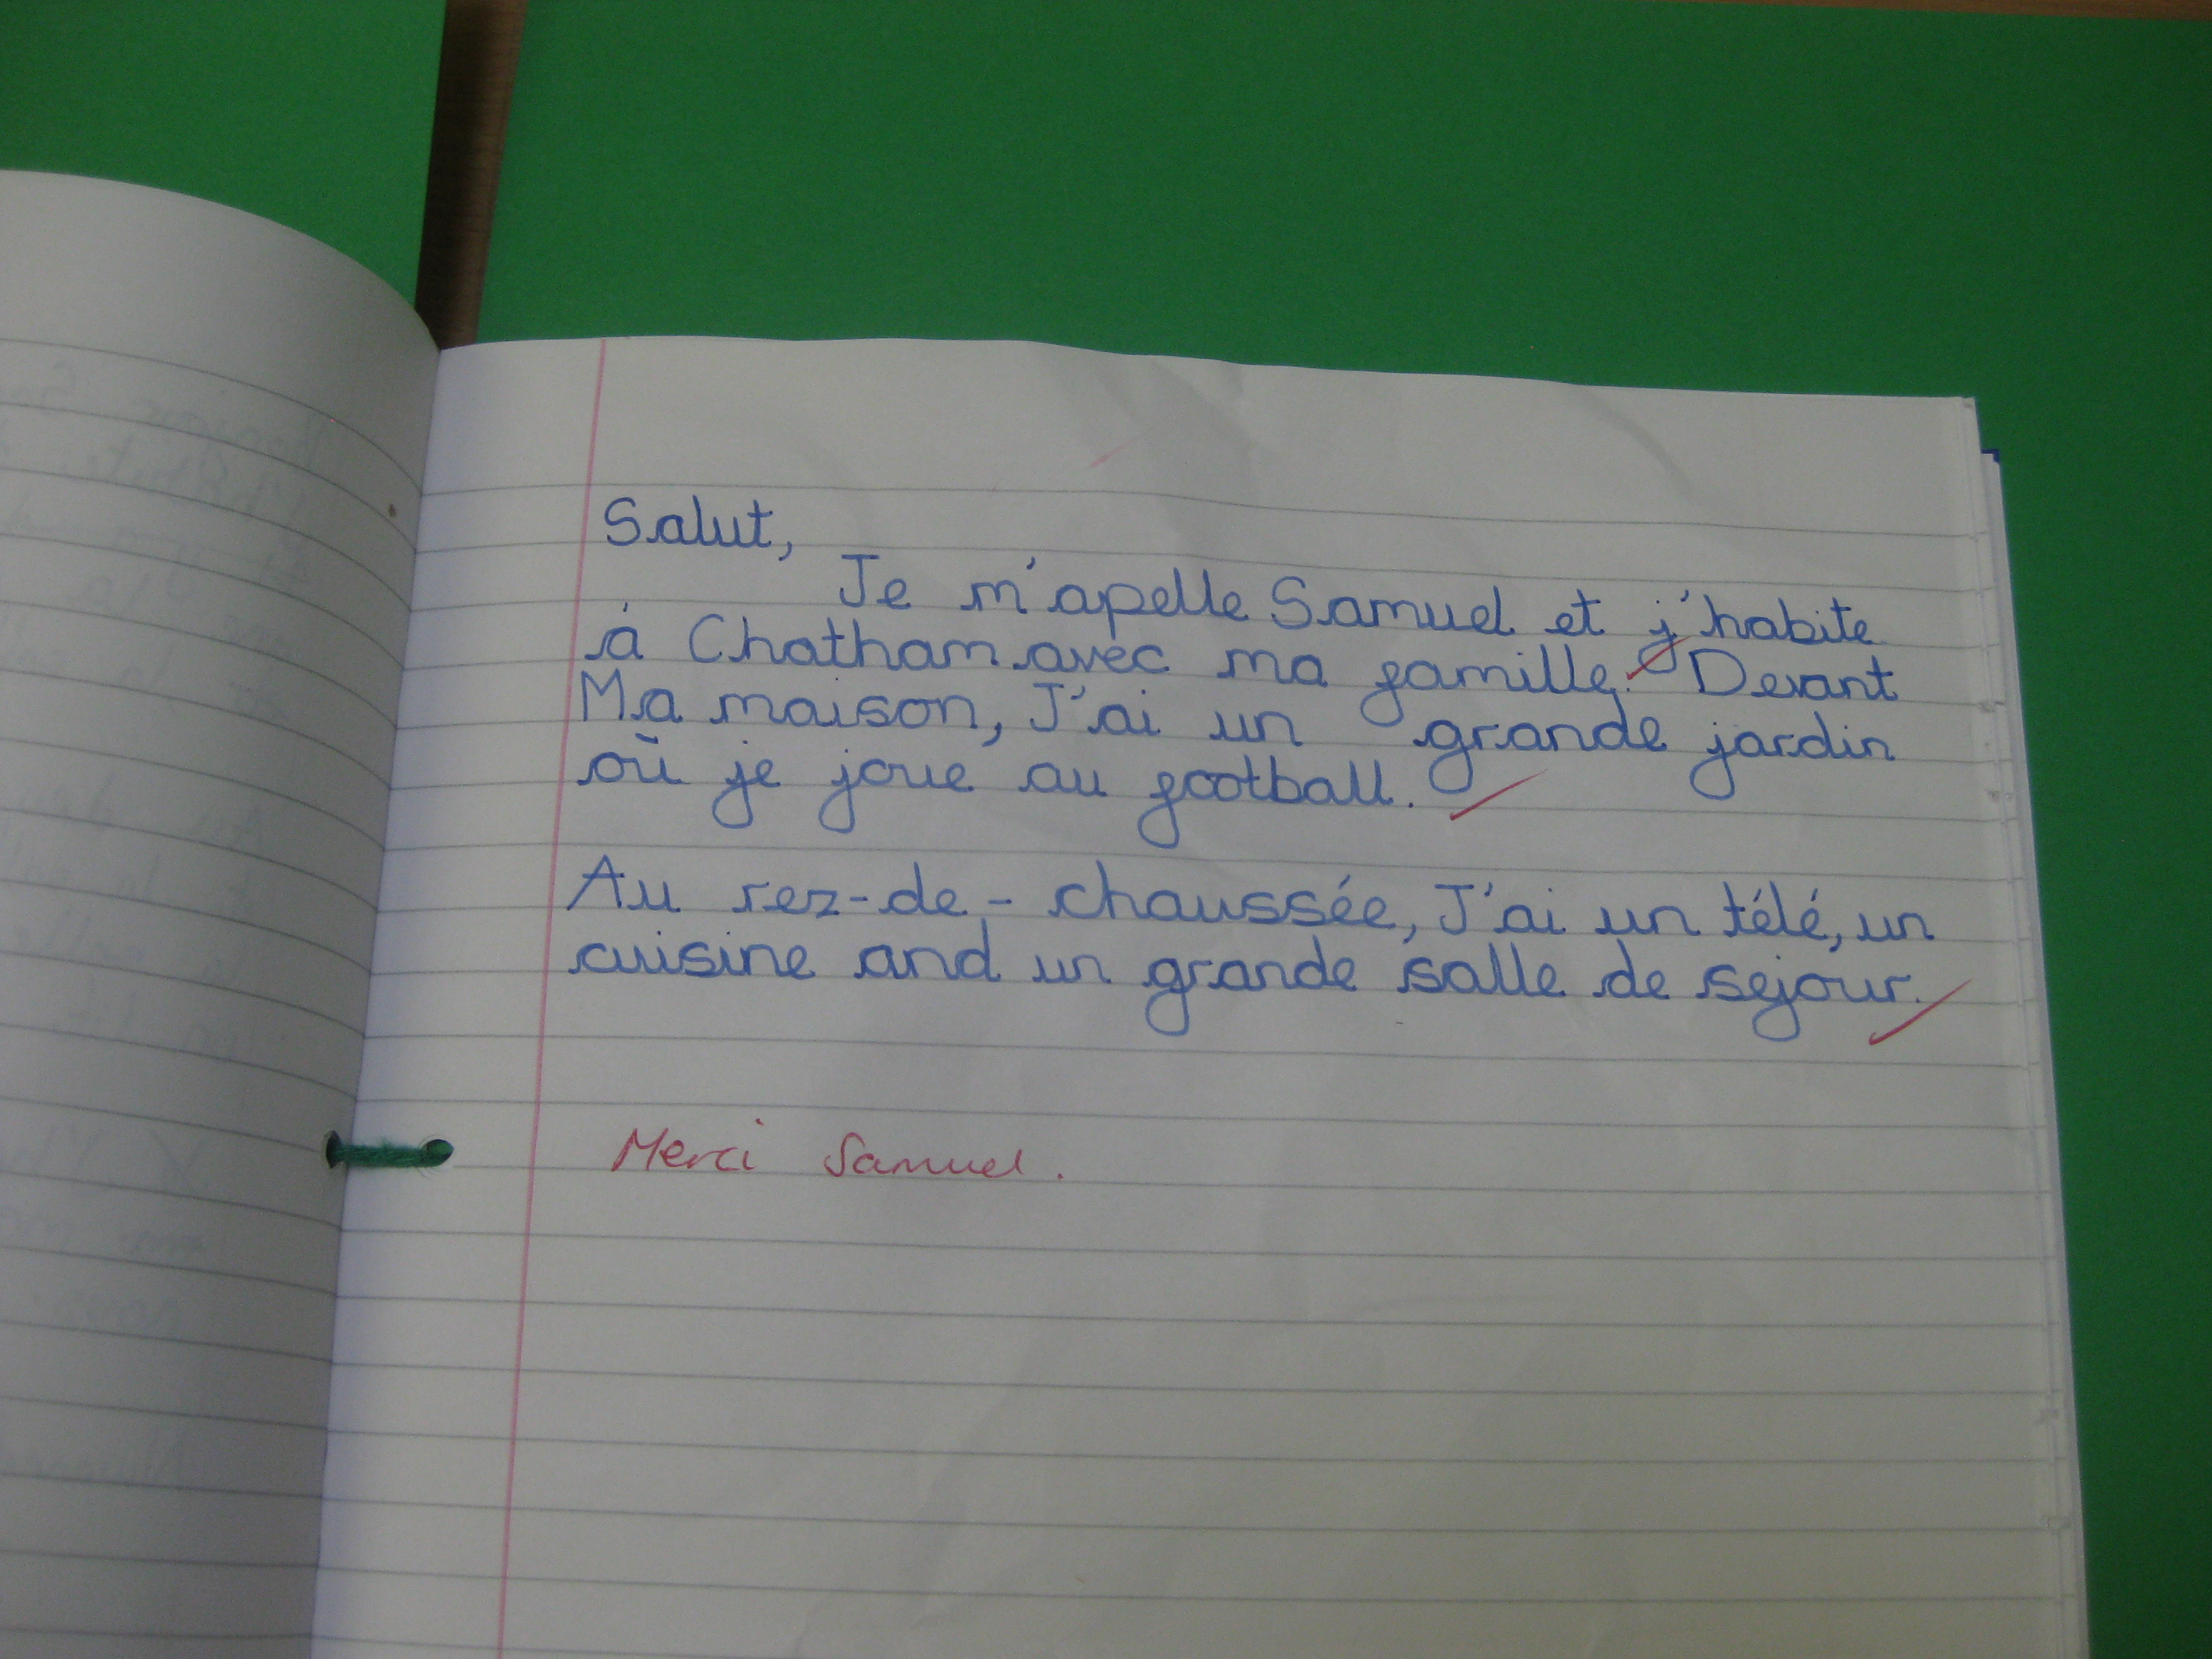 Salut,
Je m'apelle Samuel et j'habite
à Chatham avec ma famille. Devant
Ma maison, J'ai un grande jardin
où je joue au football.
Au rez-de-chaussée, J'ai un télé, un
cuisine and un grande salle de sejour.
Merci Samuel.